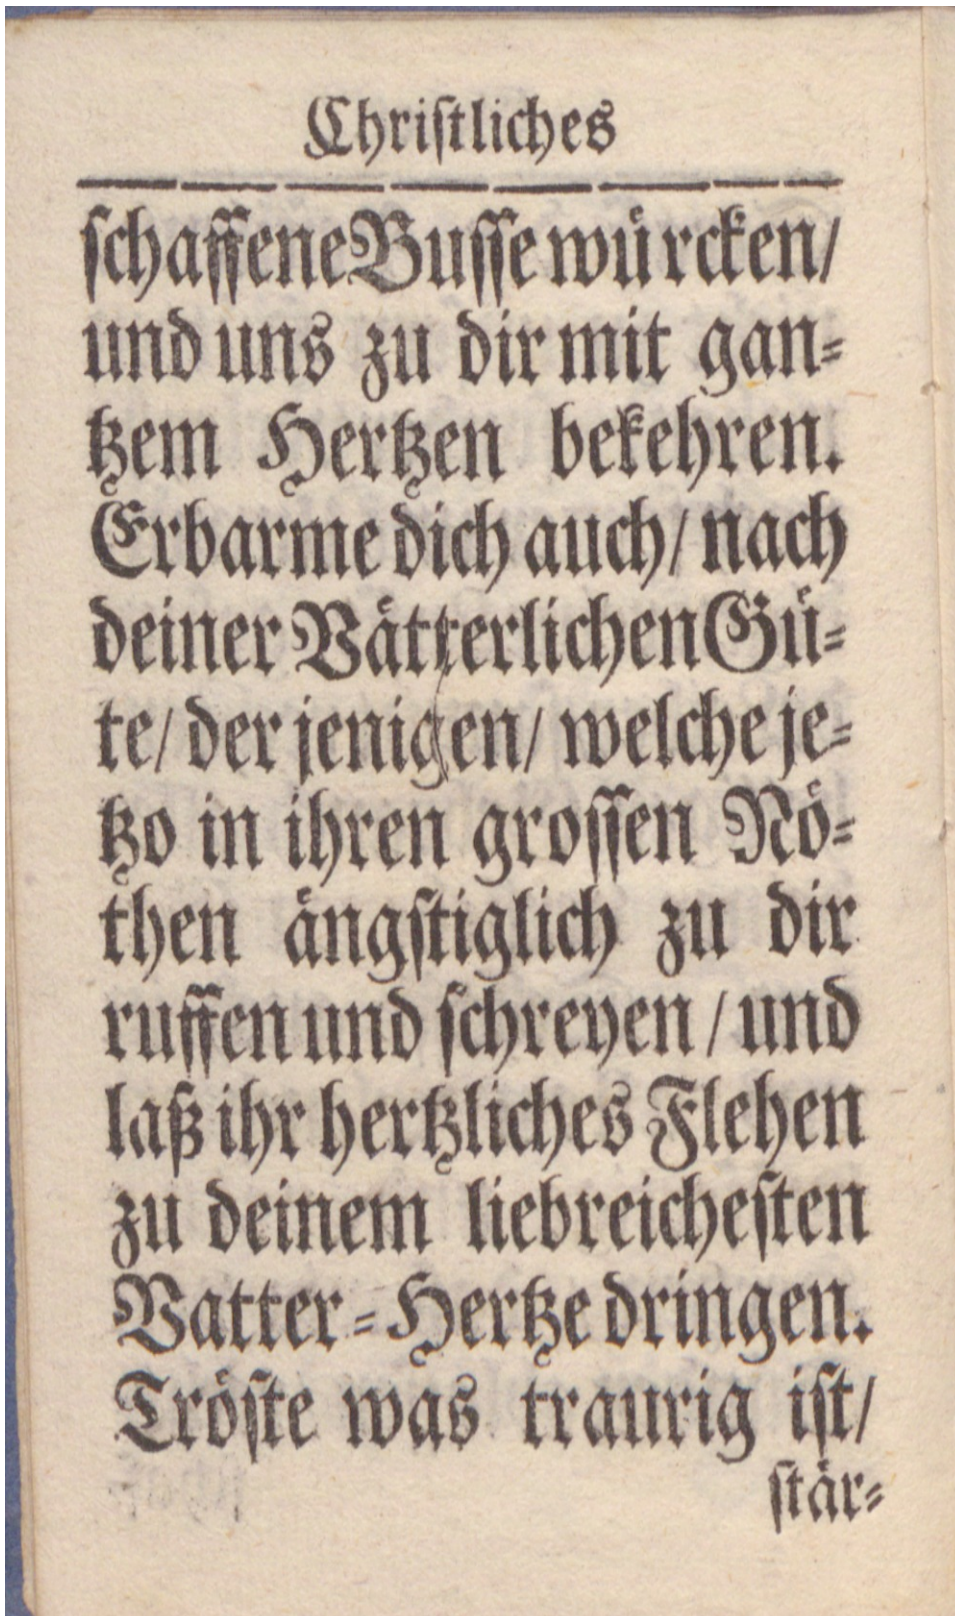 Christliches
schaffene Busse würcken/
und uns zu dir mit gan-
tzem Hertzen bekehren.
Erbarme dich auch/ nach
deiner Vätterlichen Gü-
te/ der jenigen/ welche je-
tzo in ihren grossen Nö-
then ängstiglich zu dir
ruffen und schreyen / und
laß ihr hertzliches Flehen
zu deinem liebreichesten
Vatter-Hertze dringen.
Tröste was traurig ist/
stär-